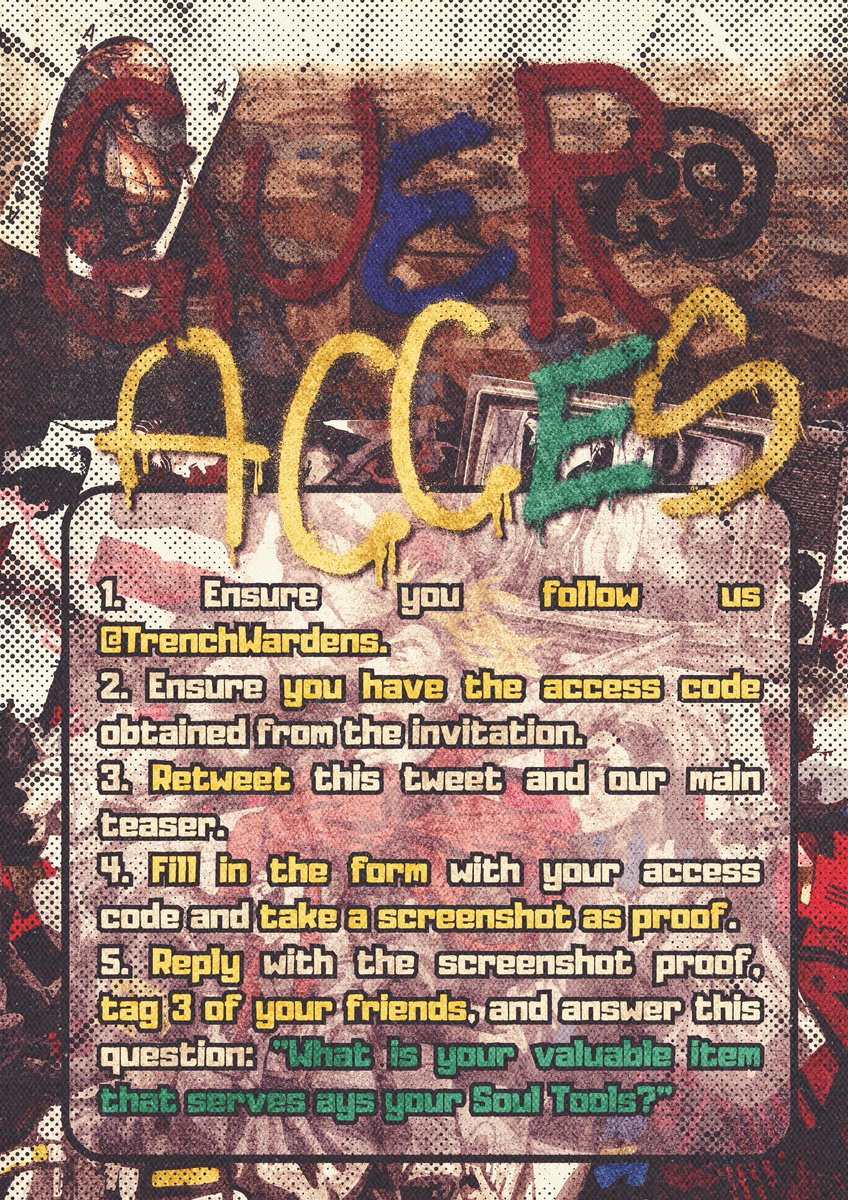 A
A
GUER
ACCES
1. Ensure you follow us
@TrenchWardens.
2. Ensure you have the access code
obtained from the invitation.
3. Retweet this tweet and our main
teaser.
4. Fill in the form with your access
code and take a screenshot as proof.
5. Reply with the screenshot proof,
tag 3 of your friends, and answer this
question: "What is your valuable item
that serves ays your Soul Tools?"